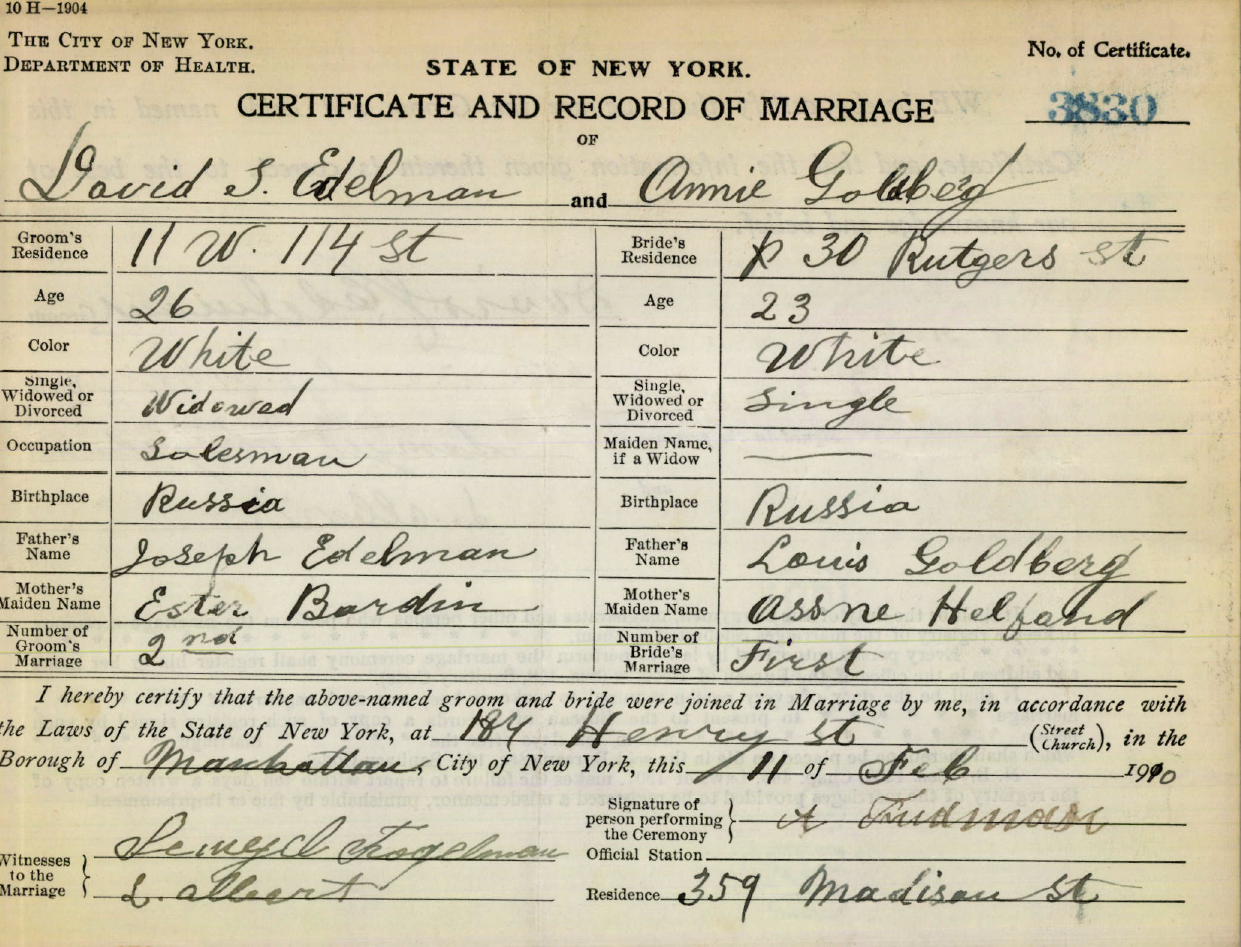 10 H—1904
THE CITY OF NEW YORK.
DEPARTMENT OF HEALTH.
STATE OF NEW YORK.
No. of Certificate.
3830
CERTIFICATE AND RECORD OF MARRIAGE
OF
David S. Edelman and Annie Goldberg
Groom's Residence 11 W. 114 St
Bride's Residence 30 Rutgers st
Age 26
Age 23
Color White
Color White
Single, Widowed or Divorced Widowed
Single, Widowed or Divorced Single
Occupation Salesman
Maiden Name, if a Widow —
Birthplace Russia
Birthplace Russia
Father's Name Joseph Edelman
Father's Name Louis Goldberg
Mother's Maiden Name Ester Bardin
Mother's Maiden Name Assne Helfand
Number of Groom's Marriage 2nd
Number of Bride's Marriage First
I hereby certify that the above-named groom and bride were joined in Marriage by me, in accordance with
the Laws of the State of New York, at 184 Henry st (Street Church), in the
Borough of Manhattan, City of New York, this 11 of Feb 1910
Signature of person performing the Ceremony A Fridman
Official Station
Witnesses to the Marriage Fogelman
L. Albert
Residence 359 Madison st